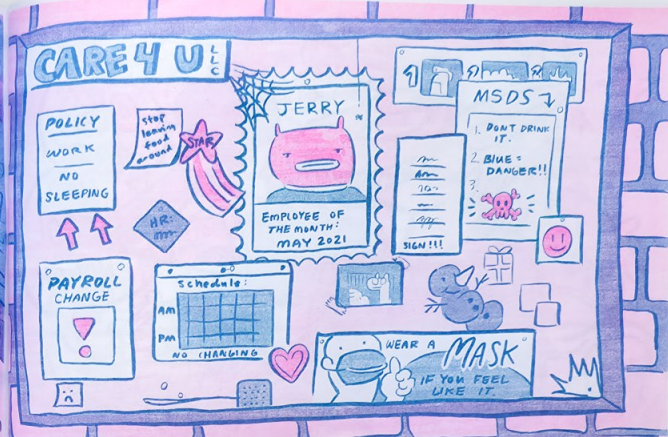 CARE 4 U LLC
POLICY
WORK
NO
SLEEPING
stop
leaving
food
around
STAR
HR:
JERRY
EMPLOYEE OF
THE MONTH:
MAY 2021
MSDS
1. DON'T DRINK
IT.
2. BLUE =
DANGER!!
3.
SIGN!!!
PAYROLL
CHANGE
!
Schedule:
AM
PM
NO CHANGING
WEAR A MASK
IF YOU FEEL
LIKE IT.